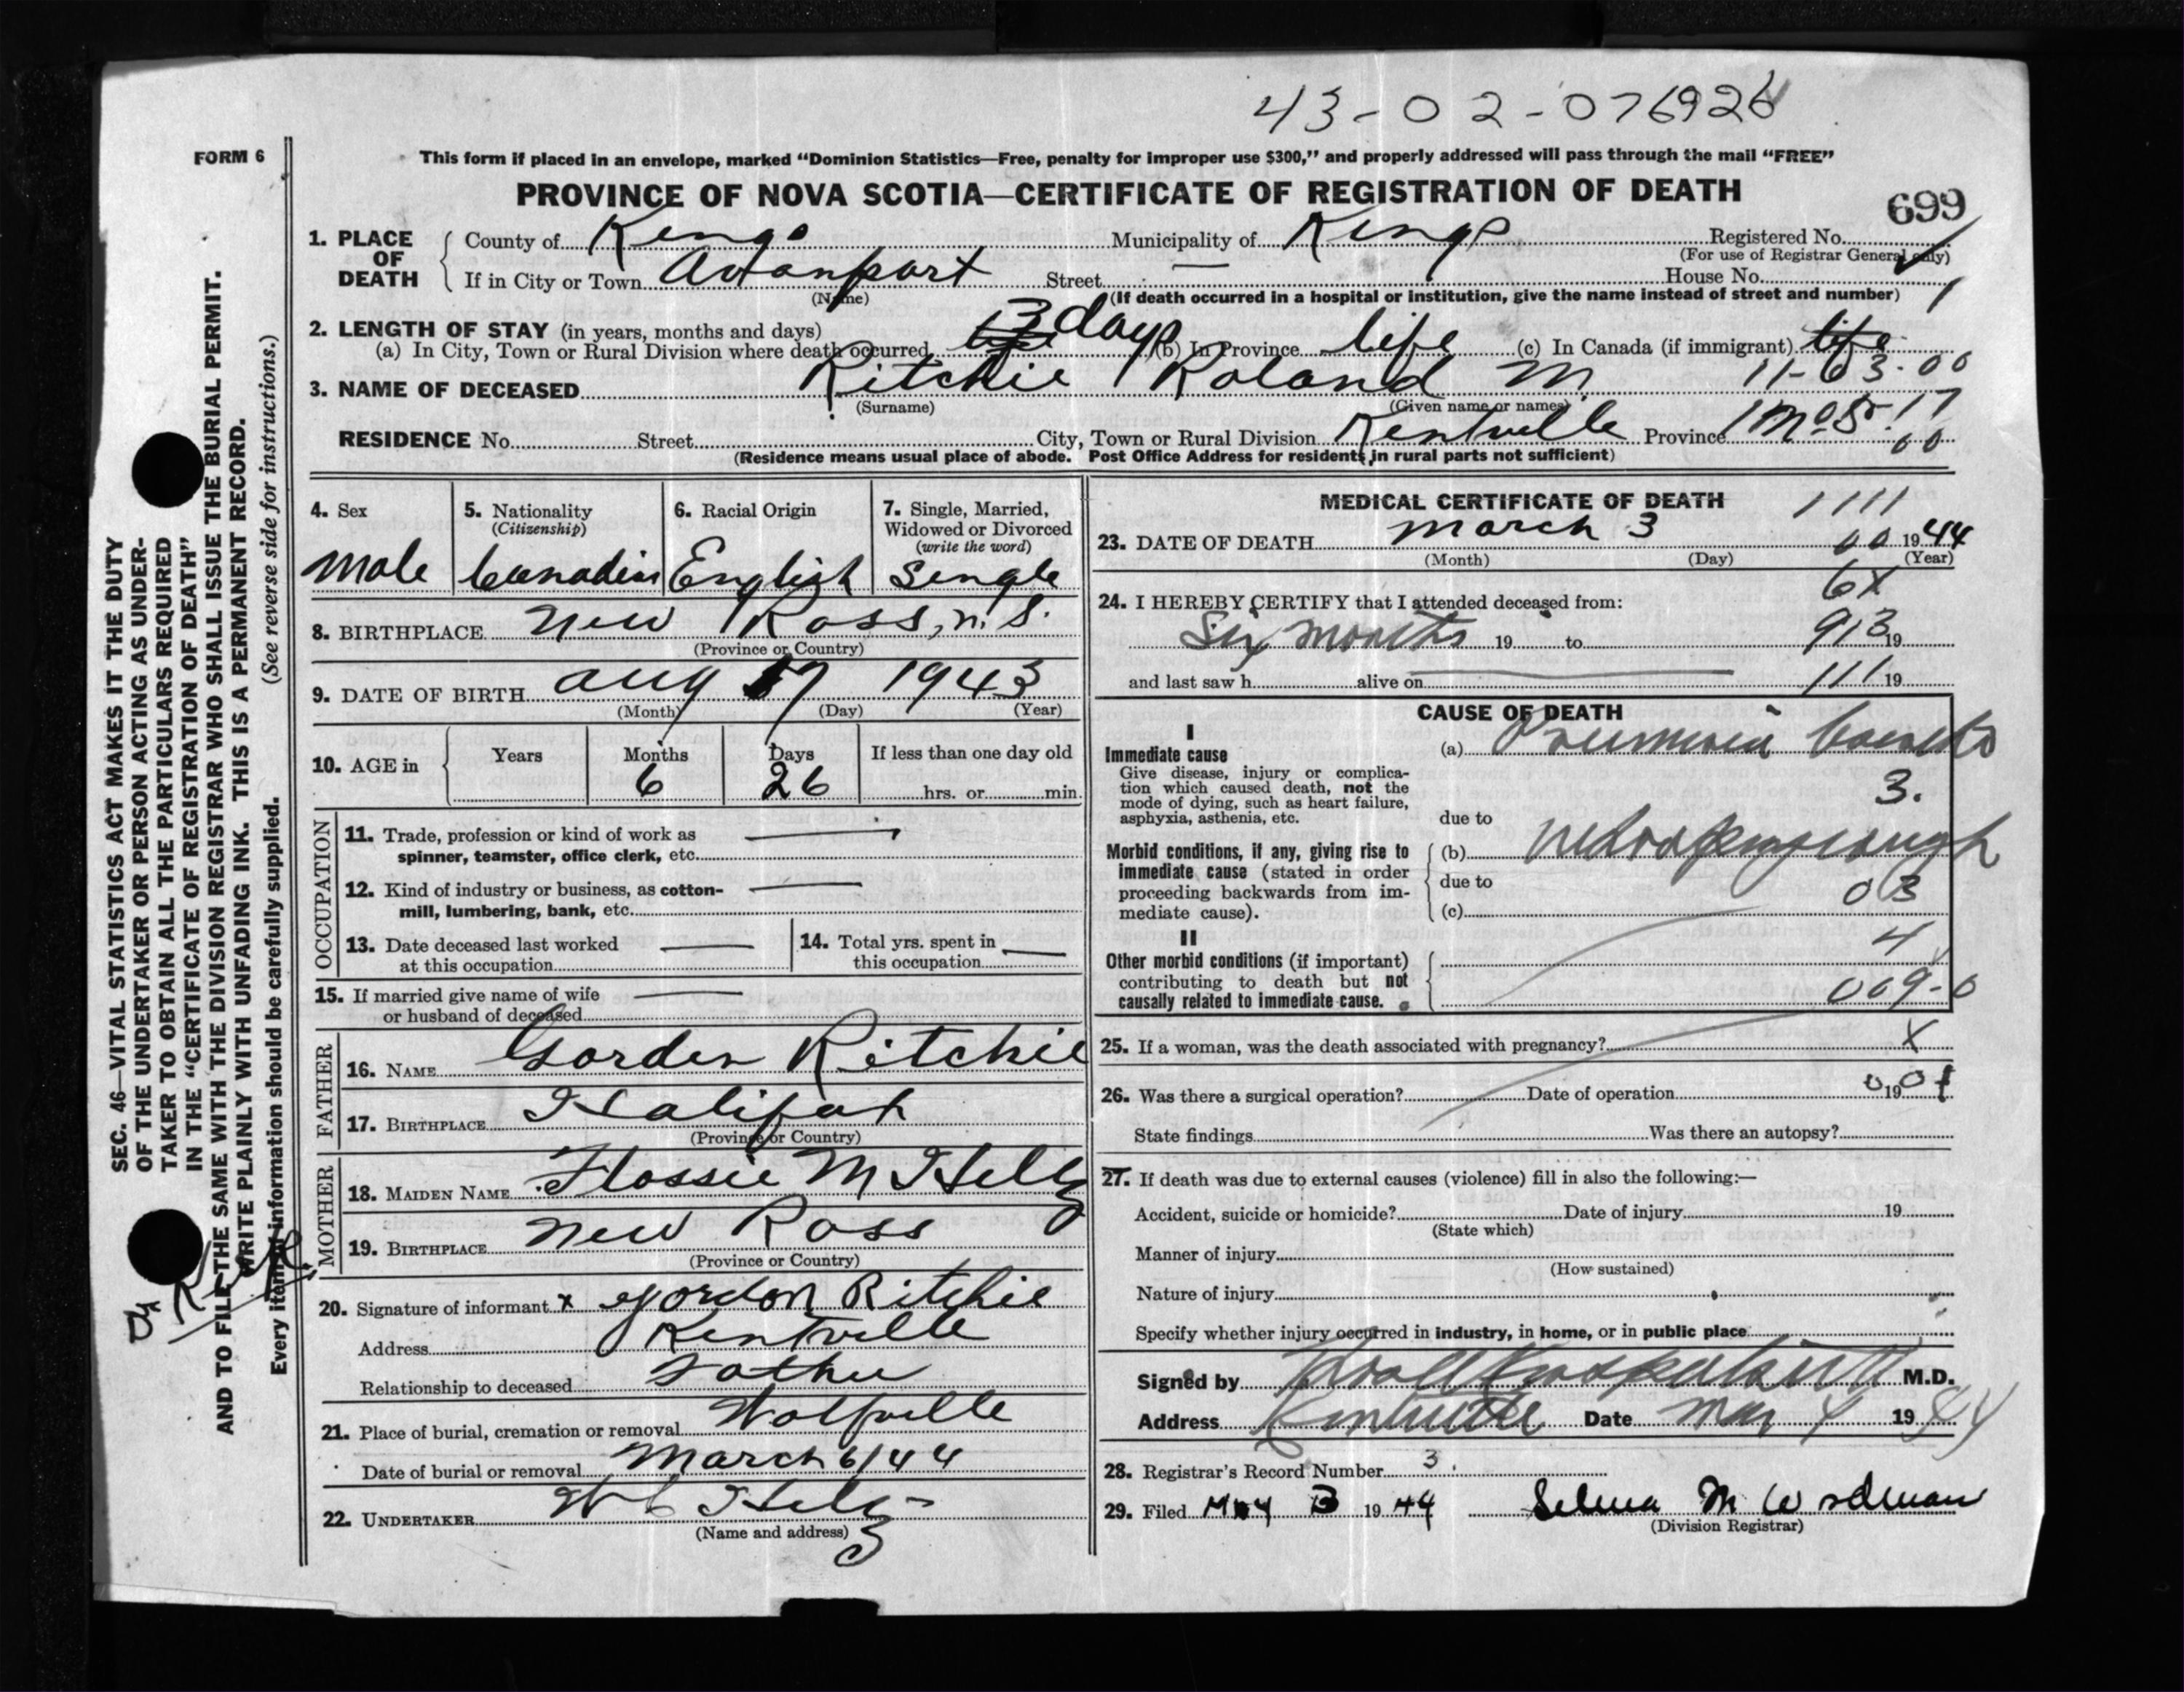 43-02-076926
FORM 6
This form if placed in an envelope, marked “Dominion Statistics—Free, penalty for improper use $300,” and properly addressed will pass through the mail “FREE”
PROVINCE OF NOVA SCOTIA—CERTIFICATE OF REGISTRATION OF DEATH
699
1. PLACE OF DEATH
County of Kings Municipality of Kings Registered No.
(For use of Registrar General only)
If in City or Town Avonport Street — House No.
(Name) (If death occurred in a hospital or institution, give the name instead of street and number) 1
2. LENGTH OF STAY (in years, months and days)
(a) In City, Town or Rural Division where death occurred 3 days (b) In Province life (c) In Canada (if immigrant) life
3. NAME OF DECEASED Ritchie Roland M 11-63-00
(Surname) (Given name or names)
RESIDENCE No. Street City, Town or Rural Division Kentville Province
(Residence means usual place of abode. Post Office Address for residents in rural parts not sufficient)
4. Sex
Male
5. Nationality
(Citizenship)
Canadian
6. Racial Origin
English
7. Single, Married,
Widowed or Divorced
(write the word)
Single
8. BIRTHPLACE New Ross, N.S.
(Province or Country)
9. DATE OF BIRTH Aug 17 1943
(Month) (Day) (Year)
10. AGE in
Years Months Days If less than one day old
6 26 hrs. or min.
OCCUPATION
11. Trade, profession or kind of work as
spinner, teamster, office clerk, etc. —
12. Kind of industry or business, as cotton-
mill, lumbering, bank, etc. —
13. Date deceased last worked
at this occupation —
14. Total yrs. spent in
this occupation —
15. If married give name of wife
or husband of deceased —
FATHER
16. NAME Gorden Ritchie
17. BIRTHPLACE Halifax
(Province or Country)
MOTHER
18. MAIDEN NAME Flossie M Hiltz
19. BIRTHPLACE New Ross
(Province or Country)
20. Signature of informant x Gordon Ritchie
Address Kentville
Relationship to deceased Father
21. Place of burial, cremation or removal Wolfville
Date of burial or removal March 6/44
22. UNDERTAKER W C Hiltz
(Name and address)
MEDICAL CERTIFICATE OF DEATH
1111
23. DATE OF DEATH March 3 00 1944
(Month) (Day) (Year)
6X
24. I HEREBY CERTIFY that I attended deceased from:
Six months 19 to 913 19
and last saw h alive on 111 19
CAUSE OF DEATH
I
Immediate cause
Give disease, injury or complica-
tion which caused death, not the
mode of dying, such as heart failure,
asphyxia, asthenia, etc.
(a) Pneumonia
3.
due to
Morbid conditions, if any, giving rise to
immediate cause (stated in order
proceeding backwards from im-
mediate cause).
(b) Whooping cough
due to
03
(c)
II
Other morbid conditions (if important)
contributing to death but not
causally related to immediate cause.
4
009-0
25. If a woman, was the death associated with pregnancy? X
26. Was there a surgical operation? Date of operation 19
State findings Was there an autopsy?
27. If death was due to external causes (violence) fill in also the following:—
Accident, suicide or homicide? Date of injury 19
(State which)
Manner of injury
(How sustained)
Nature of injury
Specify whether injury occurred in industry, in home, or in public place
Signed by M.D.
Address Kentville Date Mar 4 1944
28. Registrar's Record Number 3.
29. Filed 1944 Selma M Wordman
(Division Registrar)
SEC. 46—VITAL STATISTICS ACT MAKES IT THE DUTY
OF THE UNDERTAKER OR PERSON ACTING AS UNDER-
TAKER TO OBTAIN ALL THE PARTICULARS REQUIRED
IN THE “CERTIFICATE OF REGISTRATION OF DEATH”
AND TO FILE THE SAME WITH THE DIVISION REGISTRAR WHO SHALL ISSUE THE BURIAL PERMIT.
WRITE PLAINLY WITH UNFADING INK. THIS IS A PERMANENT RECORD.
Every item of information should be carefully supplied. (See reverse side for instructions.)